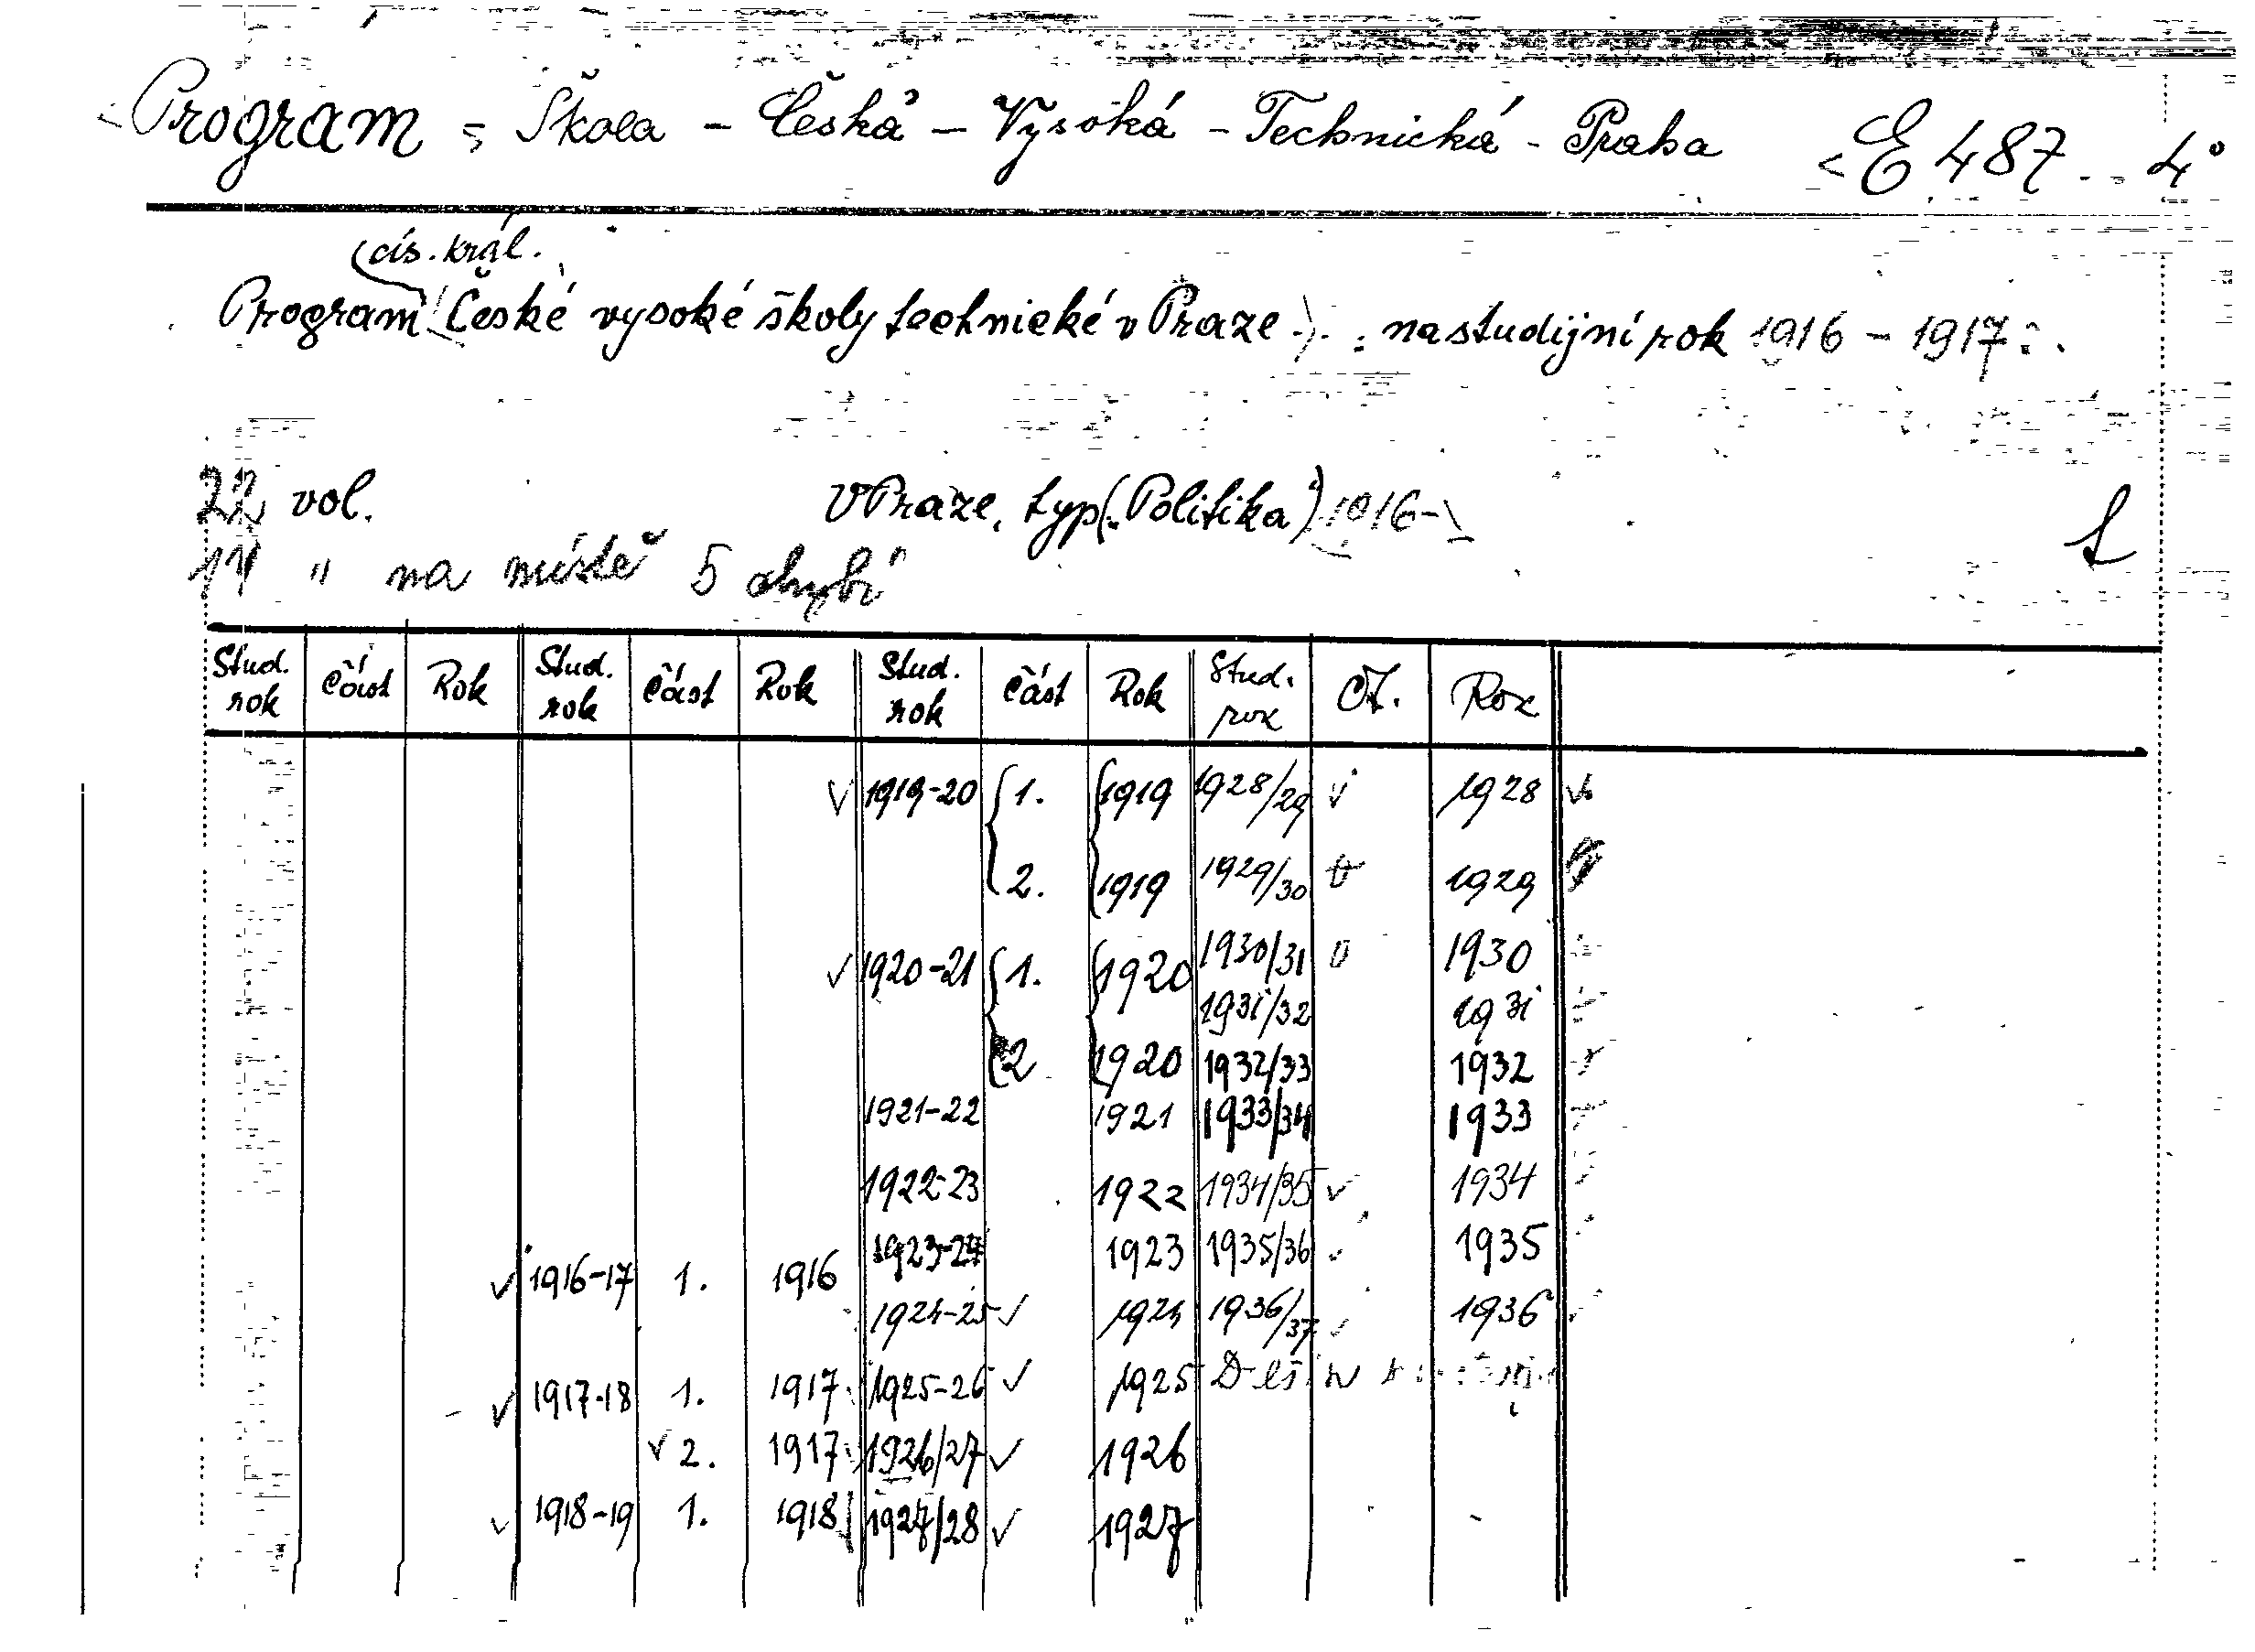 Program = Škola - Česká - Vysoká - Technická - Praha < E 487 .. 4°
cís. král.
Program České vysoké školy technické v Praze . : na studijní rok 1916 - 1917 : .
22 vol. V Praze, typ. („Politika“) 1916-
17 " na místě 5 chybí
Stud. rok Část Rok Stud. rok Část Rok Stud. rok Část Rok Stud. rok Čt. Rok
✓ 1919-20 { 1. { 1919 1928/29 ✓ 1928 ✓
2. 1919 1929/30 1929
✓ 1920-21 { 1. { 1920 1930/31 1930
1931/32 1931
2 1920 1932/33 1932
1921-22 1921 1933/34 1933
1922-23 1922 1934/35 ✓ 1934
1923-24 1923 1935/36 ✓ 1935
✓ 1916-17 1. 1916
1924-25 ✓ 1924 1936/37 ✓ 1936 ✓
✓ 1917-18 1. 1917 1925-26 ✓ 1925
✓ 2. 1917 1926/27 ✓ 1926
✓ 1918-19 1. 1918 1927/28 ✓ 1927